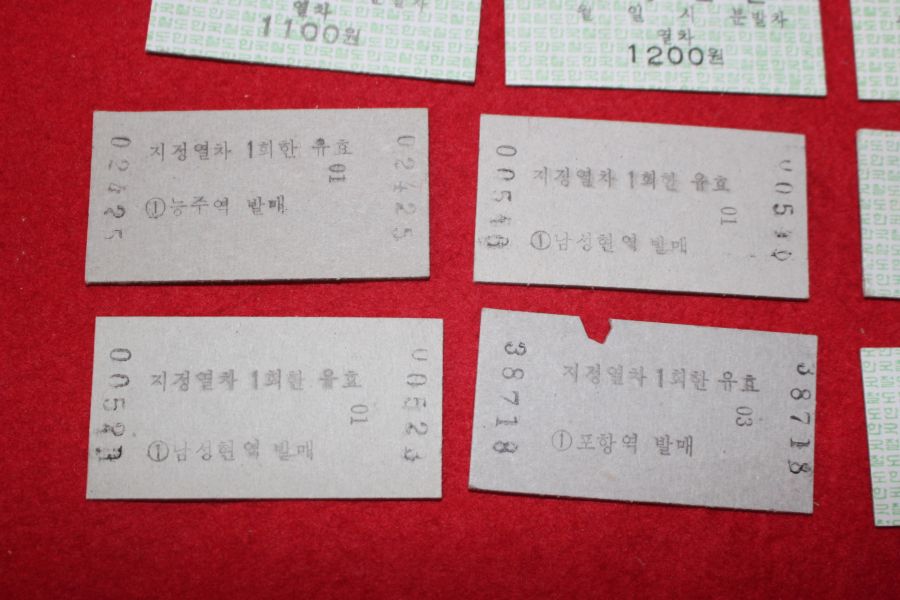 열차
1100원
월 일 시 분발차
열차
1200원
02425
지정열차 1회한 유효
01
①능주역 발매
02425
00540
지정열차 1회한 유효
01
①남성현역 발매
00540
00523
지정열차 1회한 유효
01
①남성현역 발매
00523
38718
지정열차 1회한 유효
03
①포항역 발매
38718